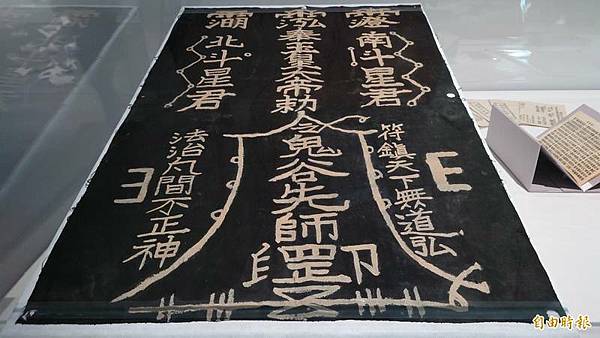 南斗星君
奉玉皇太帝勅令鬼谷先師罡
北斗星君
符鎮天下無道弘
法治人間不正神
印
自由時報